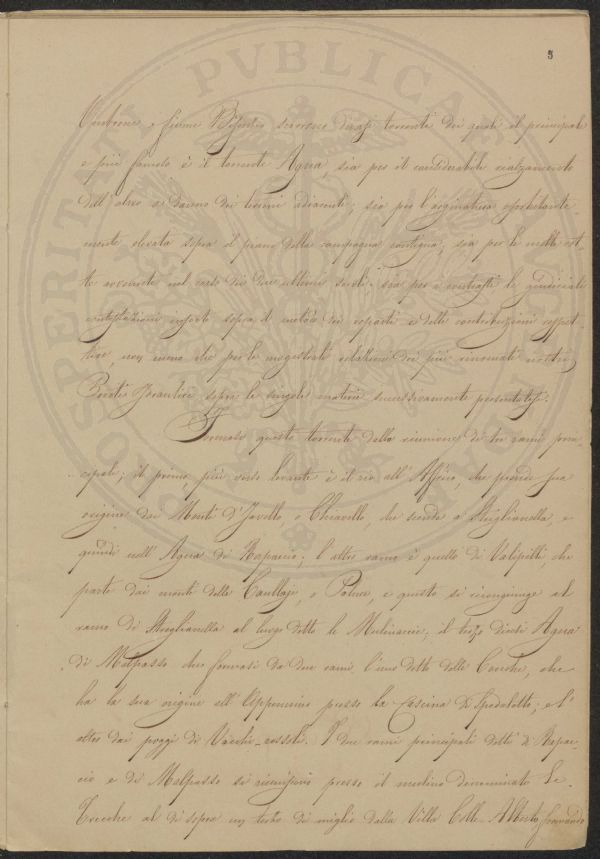 5
Ombrone, e fiume Bisenzio scorrono diversi torrenti dei quali il principale
e più famoso è il torrente Agna, sia per il considerabile rialzamento
dell'alveo a danno dei terreni adiacenti; sia per l'arginatura esorbitante-
mente elevata sopra il piano della campagna contigua; sia per le molte rot-
te avvenute nel corso dei due ultimi secoli; sia per i contrasti le giudiciali
contestazioni insorte sopra il metodo dei reparti e delle contribuzioni rispet-
tive, non meno che per le magistrali relazioni dei più rinomati nostri
Periti Idraulici sopra le singole materie successivamente presentatesi.
Formasi questo torrente dalla riunione di tre rami prin-
cipali; il primo più verso levante è il rio all'Affrico, che prende sua
origine dai Monti d'Javello, o Chiavello, che scende a Striglianella, e
quindi nell'Agna di                     ; l'altro ramo è quello di                che
parte dai monti delle                , o                , e questo si ricongiunge al
ramo di Striglianella al luogo detto le Mulinaccie; il terzo dicesi Agna
di Malpasso che formasi da due rami l'uno detto delle                , che
ha la sua origine all'Appennino presso la Cascina di Spedaletto; e l'
altro dai poggi di                . I due rami principali detti di
e di Malpasso si riuniscono presso il mulino denominato Le
Trecche al di sopra un terzo di miglio dalla Villa Colle-Alberto formando
PVBLICAE
PROSPERITATI